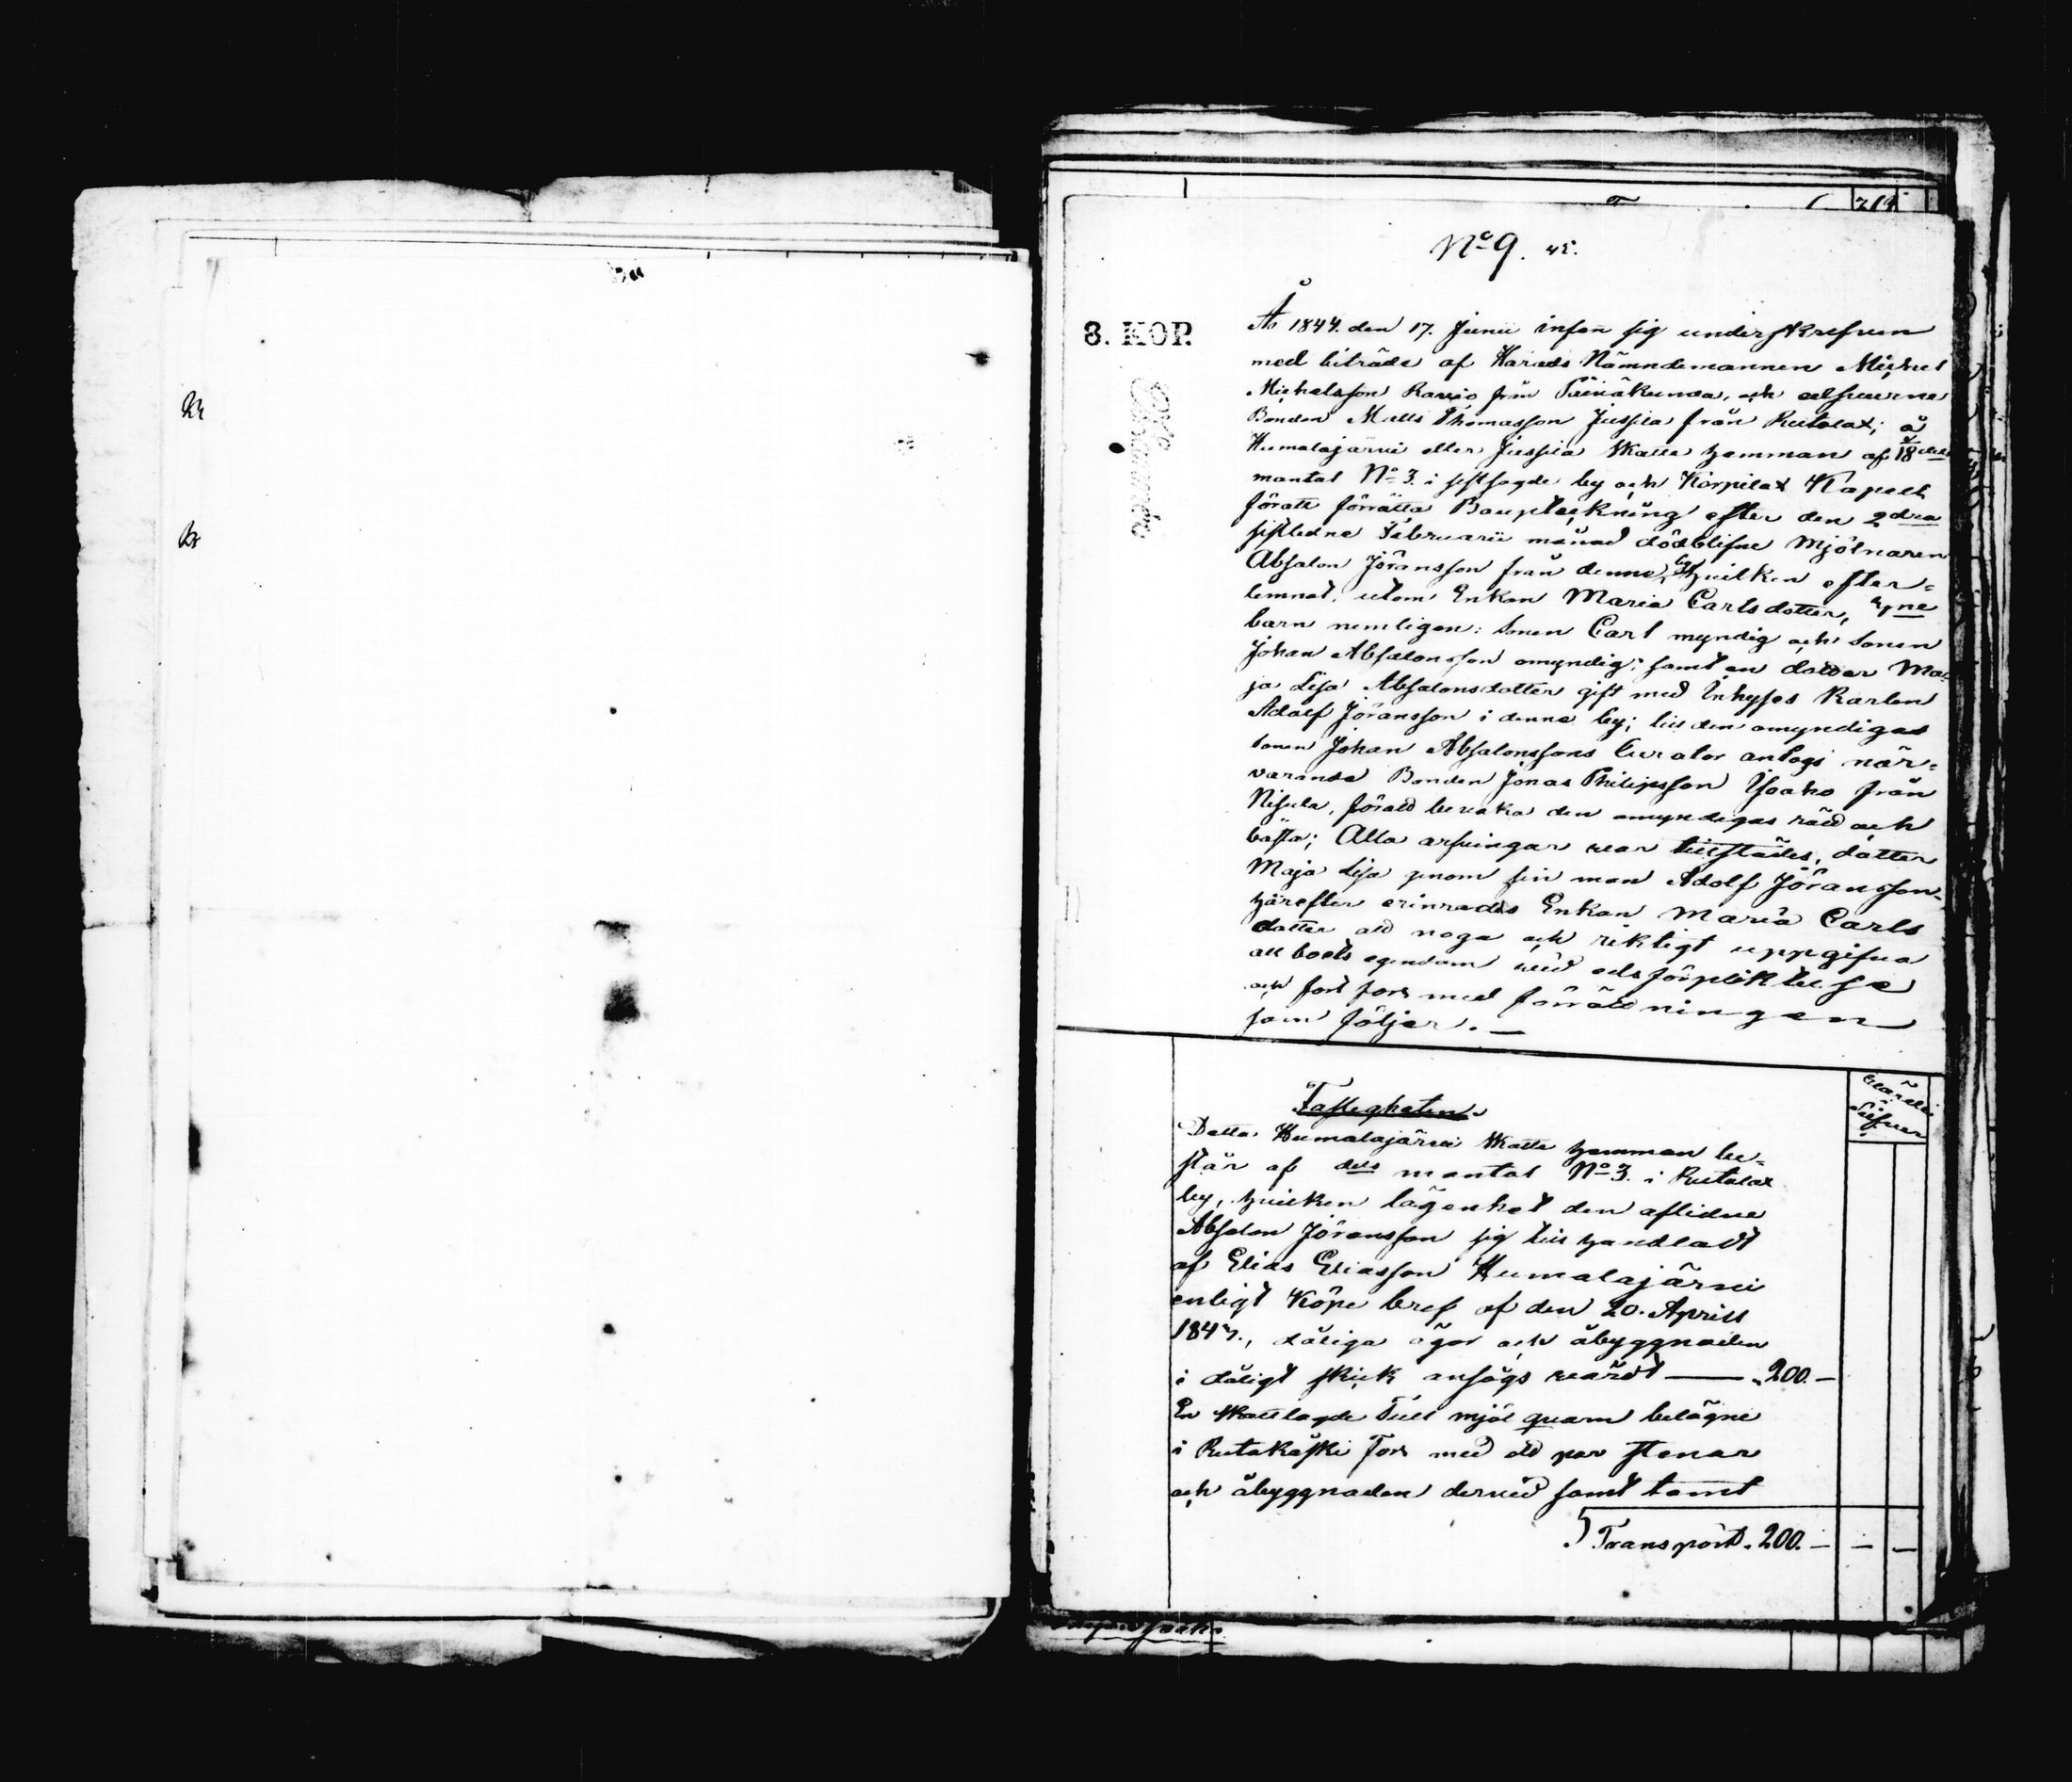 219
No 9. 45.
8. KOP.
År 1844. den 17. Junii infan sig underskrefven
med biträde af Harads Nämndemannen Michel
Michelsson Ravio från Tuiräkunda, och
Bonden Matts Thomasson Jussila från Rutalax; å
Humalajärvi eller Jussila Skatte hemman af 18 dels
mantal No 3. i sistsagde by och Korpilax Kapell
föratt förrätta Bouptekning efter den 2dra
sistledne Februarii månad dödblifne Mjölnaren
Absalon Jöransson från denne by hvilken efter=
lemnat, utom Enkan Maria Carlsdotter,
barn nemligen: Sonen Carl myndig och sonen
Johan Absalonsson omyndig; samt en dotter Ma=
ja Lisa Absalonsdotter gift med Inhyses Karlen
Adolf Jöransson i denne by; till den omyndigas
sonen Johan Absalonssons Curator antogs när=
varande Bonden Jonas Philipsson Isoaho från
Nisula, föratt bevaka den omyndigas rätt och
bästa; Alla arfvingar var tillstädes, dotter
Maja Lisa genom sin man Adolf Jöransson.
härefter erinrades Enkan Maria Carls
dotter att noga och riktigt uppgifva
all boets egendom vid eds förpliktelse
och fort fors med förrättningen
som följer. —
Fastigheten.
värde
Silfver
Detta Humalajärvi Skatte hemman be=
står af dels mantal No 3. i Rutalax
by, hvilken lägenhet den aflidne
Absalon Jöransson sig till handladt
af Elias Eliasson Humalajärvi
enligt Köpe bref af den 20. Aprill
184 , dåliga ägor och åbyggnaden
i dåligt skick ansågs värdt — 200. —
En Skattlagde Tull mjöl quarn belägne
i Rutakoski Fors med ett par stenar
och åbyggnaden dervid samt tomt
Transport. 200. — — —